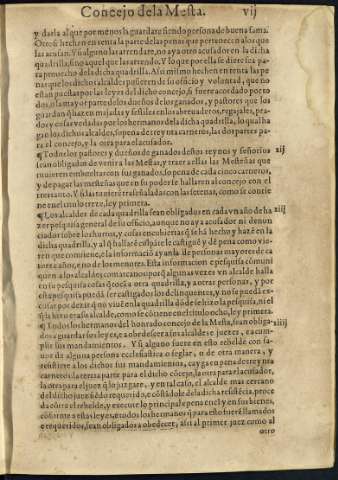 Concejo dela Mesta. vij
y darla al que por menos la guardare siendo persona de buena fama.
Otrosi hechen en renta la parte delas penas que pertenecen a los que
las acusan. Y si alguno las arrendare, no aya otro acusador en la dicha
quadrilla, sino aquel que las arrendo. Y lo que por ella se diere sea pa
ra prouecho dela dicha quadrilla. Assi mismo hechen en renta las pe
nas que los dichos alcaldes pusieren de su officio y voluntad, que no
estan puestas por las leyes del dicho concejo, si fuere acordado por to
dos, o la mayor parte de los dueños de los ganados, y pastores que los
guardan
dos y cosas vedadas por los hermanos dela dicha quadrilla, lo qual ha
gan los dichos alcaldes, so pena de treynta carneros, las dos partes pa
ra el concejo, y la otra para el acusador.
¶ Todos los pastores y dueños de ganados destos reynos y señorios xij
sean obligados de venir a las Mestas, y traer a ellas las Mesteñas que
tuuieren embueltas con sus ganados, so pena de cada cinco carneros,
y de pagar las mesteñas que en su poder se hallaren al concejo con el
tresanto. Y si las truxere traseñaladas con las setenas, como se contie
ne en el titulo trece, ley primera.
¶ Los alcaldes de cada quadrilla sean obligados en cada vn año de ha xiij
zer pesquisa general de su officio, aunque no aya acusador ni denun
ciador sobre los hurtos, y cosas encubiertas que se hã hecho y hazẽ en la
dicha quadrilla, y al que hallarẽ culpãte le castiguẽ y dẽ pena como vie
ren que conuiene,
zia a los alcaldes comarcanos por que algunas vezes vn alcalde halla
en su pesquisa cosas que tocã a otra quadrilla, y a otras personas, y por
esta pesquisa puedã ser castigados los delinquentes, y no se puedã es
cusar por dezir que no viuẽ en la quadrilla dõde se hizo la pesquisa, ni el
que la hizo era su alcalde, como se cõtiene en el titulo ocho, ley primera.
¶ Todos los hermanos del honrado concejo de la Mesta, sean obliga xiiij
dos a guardar sus leyes, e a obedescer a sus alcaldes e juezes, e a cum
plir sus mandamientos. Y si alguno fuere en esto rebelde con fa
uor de alguna persona ecclesiastica o seglar, o de otra manera, y
resistiere a los dichos sus mandamientos, cayga en pena de treynta
carneros: la tercia parte para el dicho cõcejo, la otra para el acusador,
la otra para el juez que lo juzgare, y en tal caso, el alcalde mas cercano
del dicho juez siẽdo requerido, e cõstãdole dela dicha resistẽcia, proce
da cõtra el rebelde, y execute lo principal e pena en el y en sus bienes,
cõforme a estas leyes, e todos los hermanos que para ello fuerẽ llamados
e requeridos, sean obligados a obedecer, assi al primer juez como al
otro